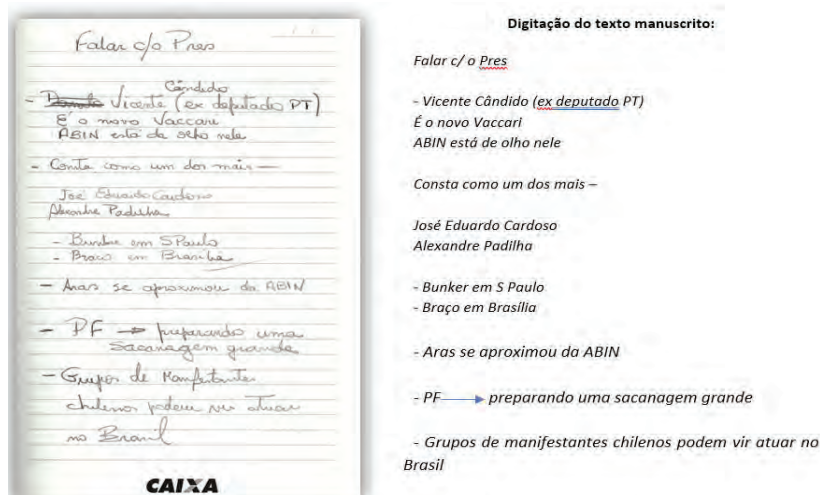 Falar c/o Pres
Cândido
- Vicente (ex deputado PT)
É o novo Vaccari
ABIN está de olho nele
- Consta como um dos mais —
José Eduardo Cardoso
Alexandre Padilha
- Bunker em S Paulo
- Braço em Brasília
- Aras se aproximou da ABIN
- PF → preparando uma
sacanagem grande
- Grupos de Manifestantes
chilenos podem vir atuar
no Brasil
CAIXA
Digitação do texto manuscrito:
Falar c/ o Pres
- Vicente Cândido (ex deputado PT)
É o novo Vaccari
ABIN está de olho nele
Consta como um dos mais –
José Eduardo Cardoso
Alexandre Padilha
- Bunker em S Paulo
- Braço em Brasília
- Aras se aproximou da ABIN
- PF → preparando uma sacanagem grande
- Grupos de manifestantes chilenos podem vir atuar no
Brasil